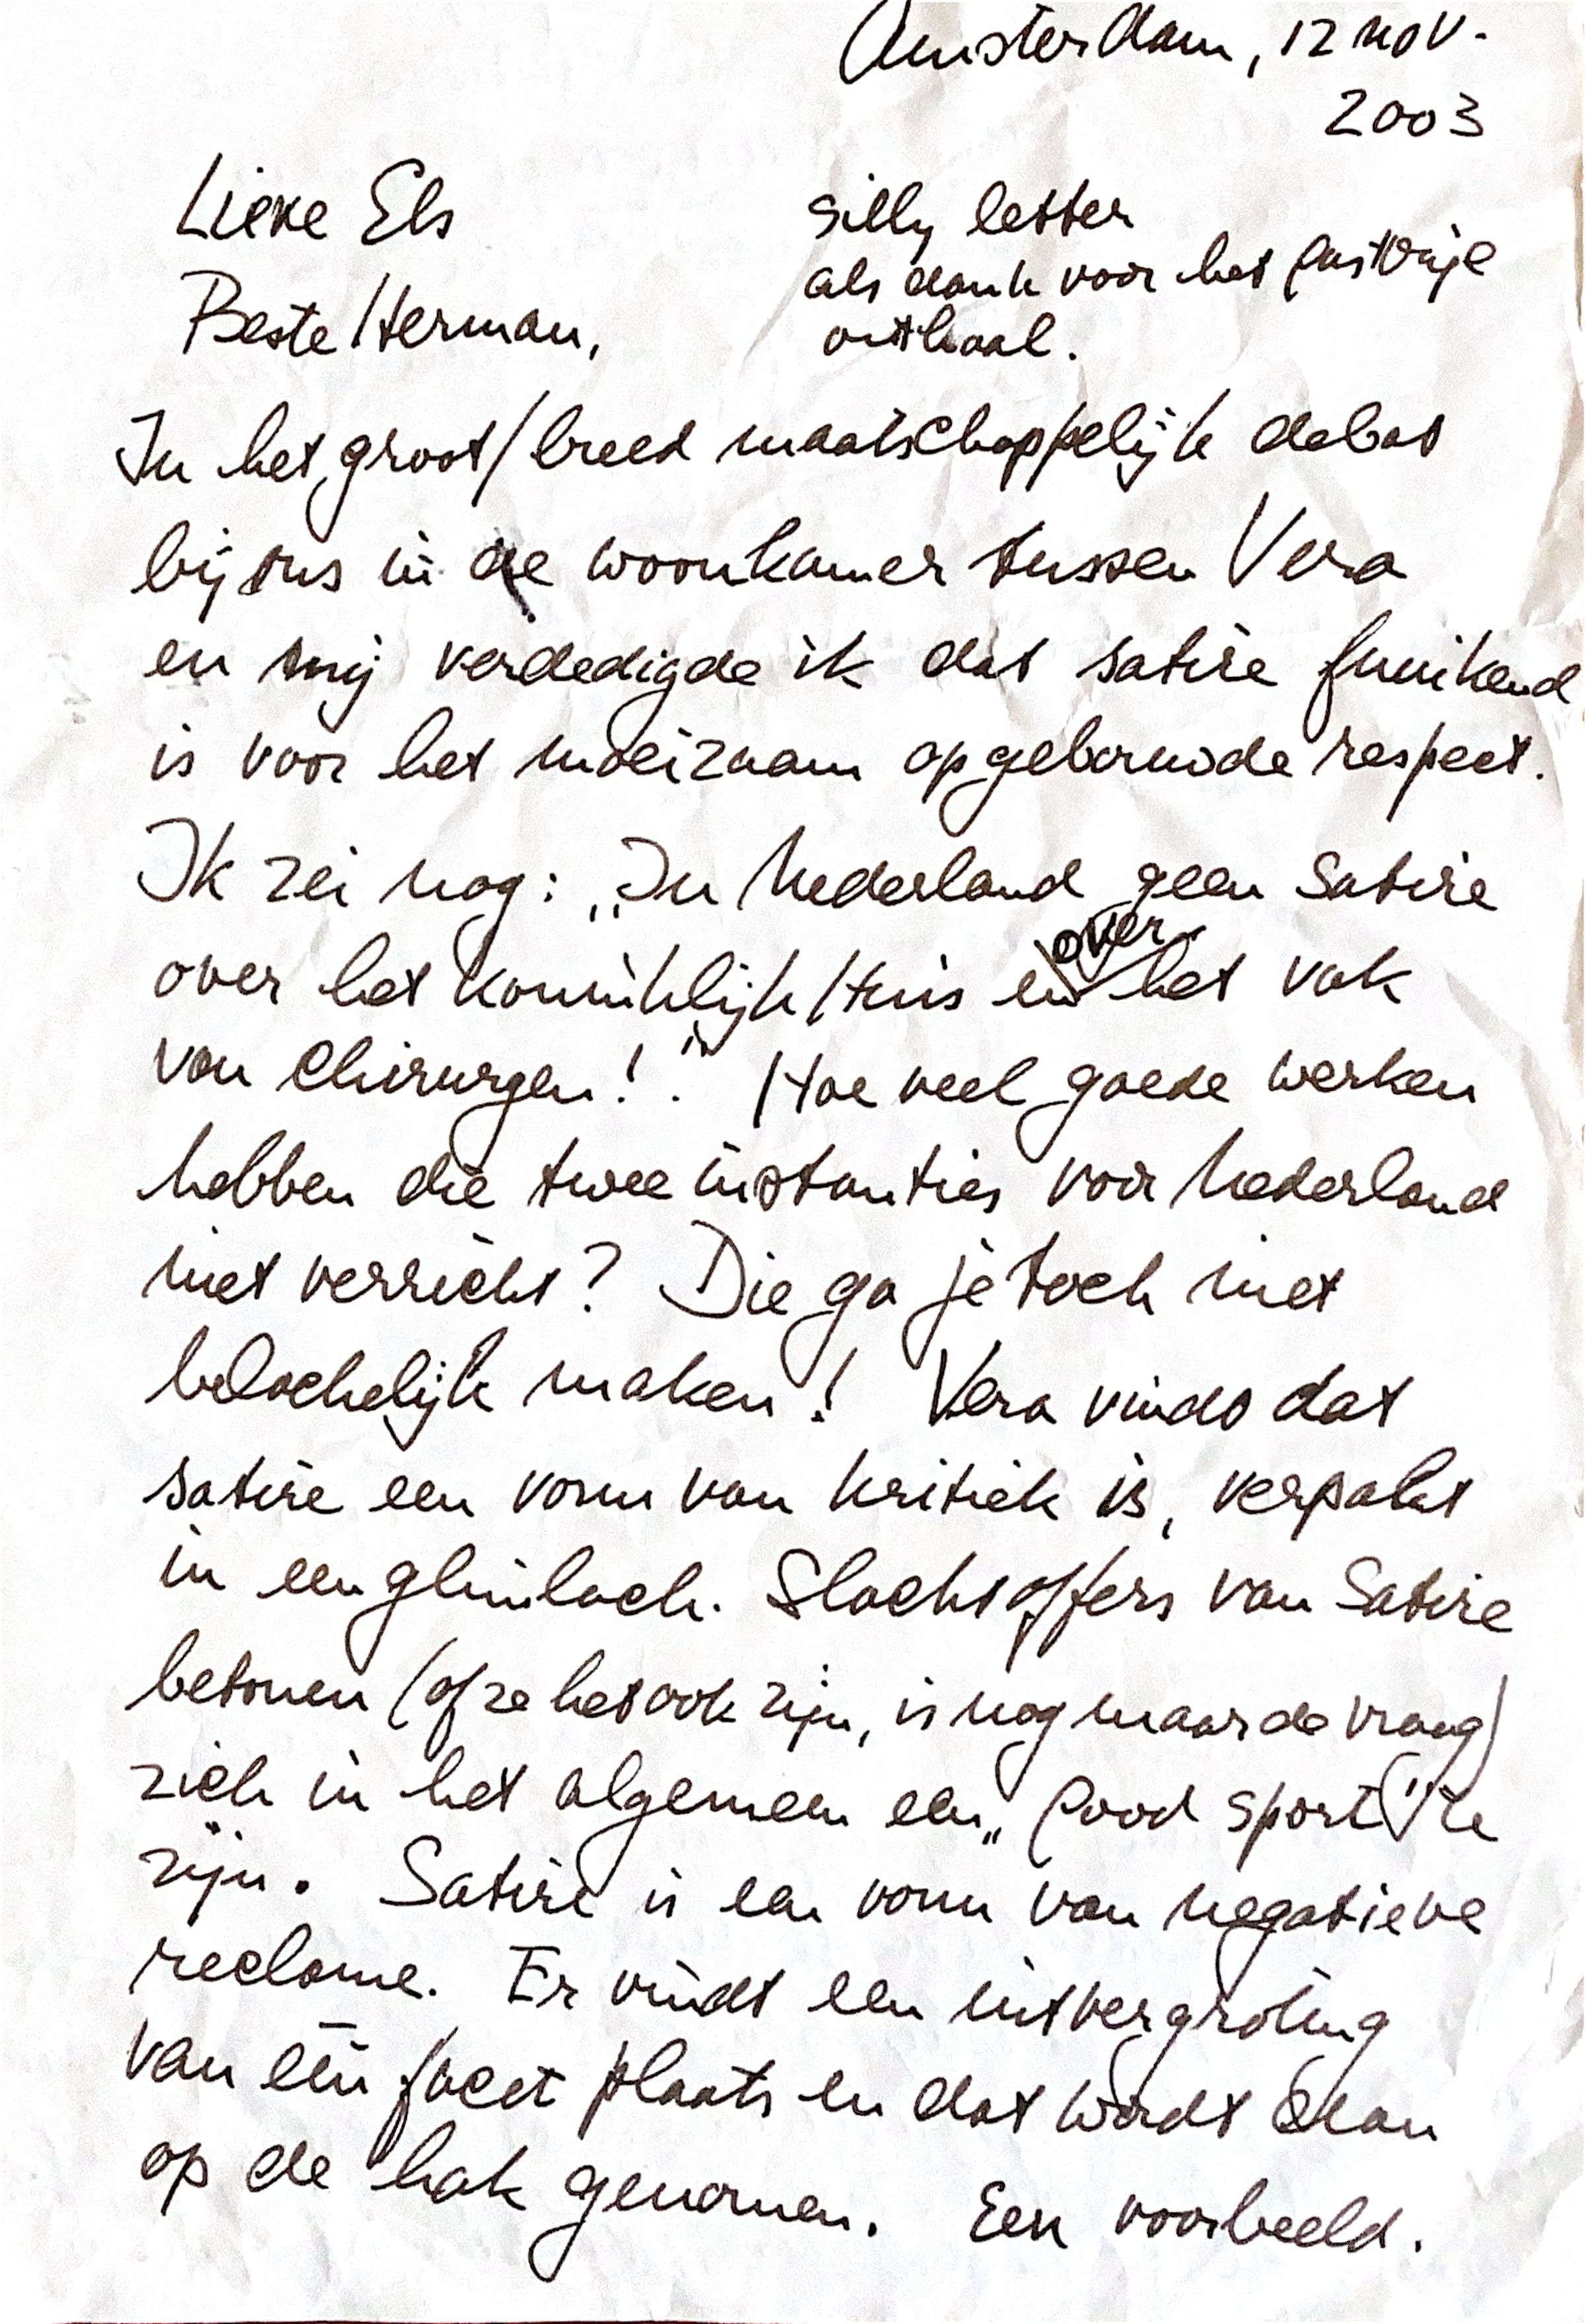 Amsterdam, 12 nov.
2003
Lieve Els
Beste Herman,
silly letter
als dank voor het gastvrije
onthaal.
In het groot/breed maatschappelijk debat
bij ons in de woonkamer tussen Vera
en mij verdedigde ik dat satire funikend
is voor het moeizaam opgebouwde respect.
Ik zei nog: „In Nederland geen satire
over het Koninklijk Huis en over het vak
van chirurgen!". Hoe veel goede werken
hebben die twee instanties voor Nederland
niet verricht? Die ga je toch niet
belachelijk maken! Vera vindt dat
satire een vorm van kritiek is, verpakt
in een glimlach. Slachtoffers van Satire
betonen (of ze het ook zijn, is nog maar de vraag)
zich in het algemeen een „good sport" te
zijn. Satire is een vorm van negatieve
reclame. Er vindt een uitvergroting
van één facet plaats en dat wordt dan
op de hak genomen. Een voorbeeld.